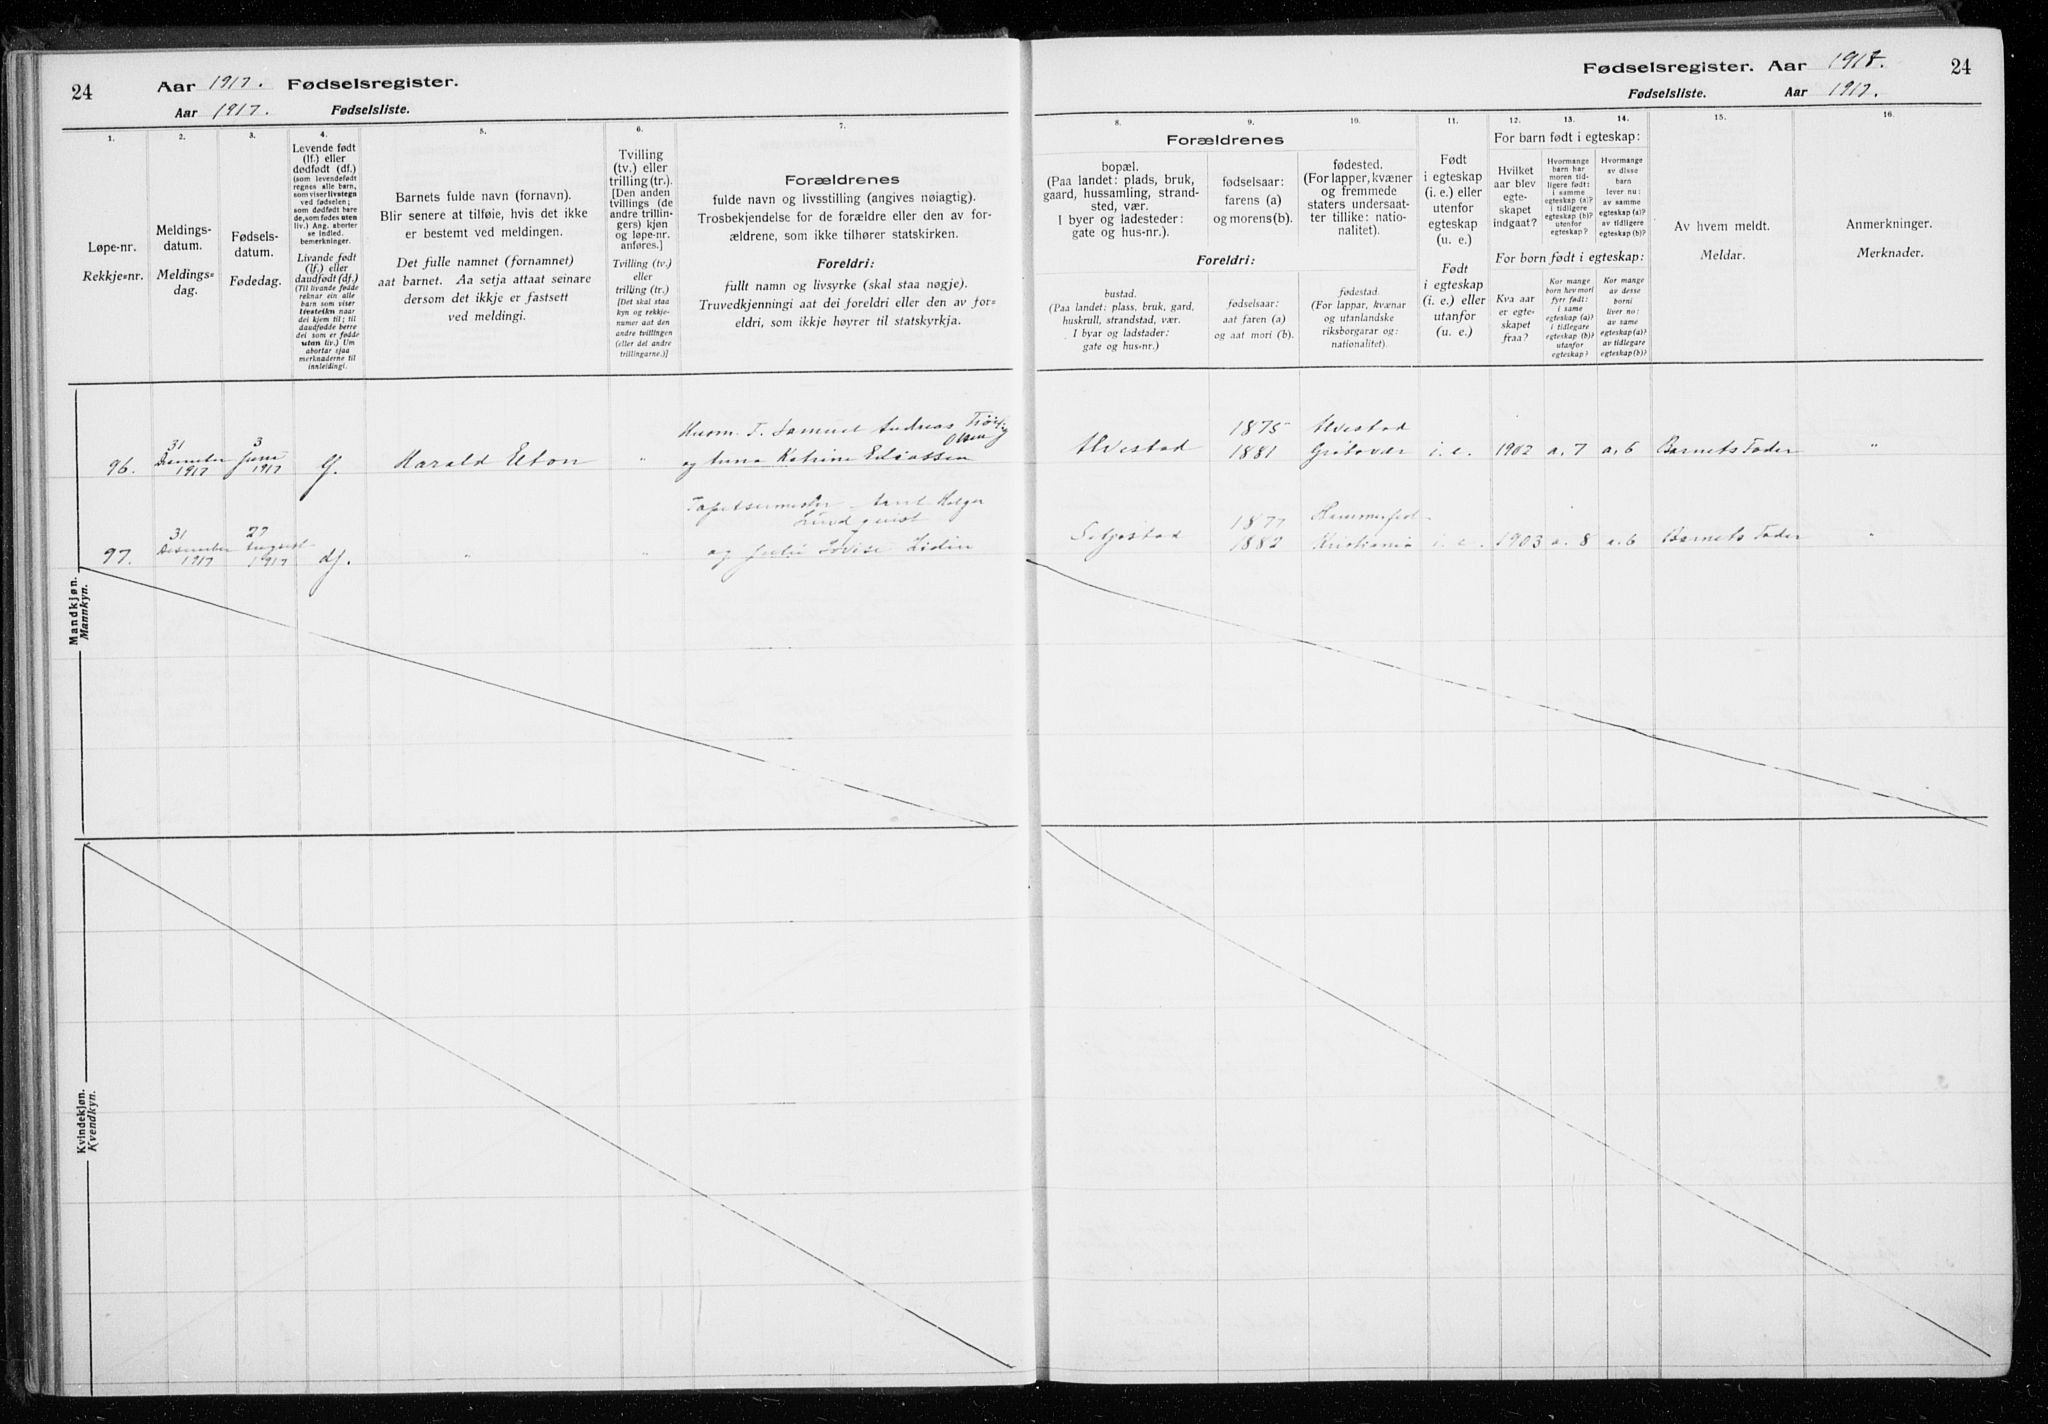 24
Aar 1917. Fødselsregister.
Aar 1917. Fødselsliste.
1.
Løpe-nr.
Rekkje=nr.
2.
Meldings-
datum.
Meldings=
dag.
3.
Fødsels-
datum.
Fødedag.
4.
Levende født
(lf.) eller
dødfødt (df.)
(som levendefødt
regnes alle barn,
som viser livstegn
ved fødselen;
som dødfødt bare
de, som fødes uten
liv.) Ang. aborter
se indled.
bemerkninger.
Livande født
(lf.) eller
daudfødt (df.)
(Til livande fødde
reknar ein alle
barn som viser
livsteikn naar
dei kjem til; til
daudfødde berre
dei som er fødde
utan liv.) Um
abortar sjaa
merknaderne til
innleidingi.
5.
Barnets fulde navn (fornavn).
Blir senere at tilføie, hvis det ikke
er bestemt ved meldingen.
Det fulle namnet (fornamnet)
aat barnet. Aa setja attaat seinare
dersom det ikkje er fastsett
ved meldingi.
6.
Tvilling
(tv.) eller
trilling (tr.).
[Den anden
tvillings (de
andre trillin-
gers) kjøn
og løpe-nr.
anføres.]
Tvilling (tv.)
eller
trilling (tr.)
[Det skal staa
kyn og rekkje-
numer aat den
andre tvillingen
(eller dei andre
trillingarne.)]
7.
Forældrenes
fulde navn og livsstilling (angives nøiagtig).
Trosbekjendelse for de forældre eller den av for-
ældrene, som ikke tilhører statskirken.
Foreldri:
fullt namn og livsyrke (skal staa nøgje).
Truvedkjenningi aat dei foreldri eller den av for=
eldri, som ikkje høyrer til statskyrkja.
Mandkjøn.
Mannkyn.
96.
31
Desember
1917
3
Juni
1917
lf.
Harald Elton
"
Husm. T. Samuel Andreas
Olsen
og Anna Katrine Eliassen
97.
31
Desember
1917
27
August
1917
df.
"
"
Tapetsermester Axel Holger
Lindquist
og Julie Lovise Lidin
Kvindekjøn.
Kvendkyn.
Fødselsregister. Aar 1918.
24
Fødselsliste. Aar 1917.
Forældrenes
8.
bopæl.
(Paa landet: plads, bruk,
gaard, hussamling, strand-
sted, vær.
I byer og ladesteder:
gate og hus-nr.).
9.
fødselsaar:
farens (a)
og morens (b).
10.
fødested.
(For lapper, kvæner
og fremmede
staters undersaat-
ter tillike: natio-
nalitet).
Foreldri:
bustad.
(Paa landet: plass, bruk, gard,
huskrull, strandstad, vær.
I byar og ladstader:
gate og hus-nr.)
fødselsaar:
aat faren (a)
og aat mori (b).
fødestad.
(For lappar, kvænar
og utanlandske
riksborgarar og:
nationalitet).
11.
Født
i egteskap
(i. e.) eller
utenfor
egteskap
(u. e.)
Født
i egteskap
(i. e.) eller
utanfor
(u. e.)
12. 13. 14.
For barn født i egteskap:
Hvilket
aar blev
egte-
skapet
indgaat?
Hvormange
barn har
moren tid-
ligere født:
i samme
egteskap (a)?
i tidligere
egteskap (b)?
utenfor
egteskap?
Hvormange
av disse
barn
lever nu:
av samme
egteskap (a)?
av tidligere
egteskap (b)?
For born født i egteskap:
Kva aar
er egte-
skapet
fraa?
Kor mange
born hev mori
fyrr født:
i same
egteskap (a)?
i tidlegare
egteskap (b)?
utanfor
egteskap?
Kor mange
av desse
borni
liver no:
av same
egteskap (a)?
av tidlegare
egteskap (b)?
15.
Av hvem meldt.
Meldar.
16.
Anmerkninger.
Merknader.
Alvestad
1875
1881
Alvestad
Grøtavær
i. e.
1902
a. 7
a. 6
Barnets Fader
"
Seljestad
1877
1882
Hammerfest
Kristiania
i. e.
1903
a. 8
a. 6
Barnets Fader
"